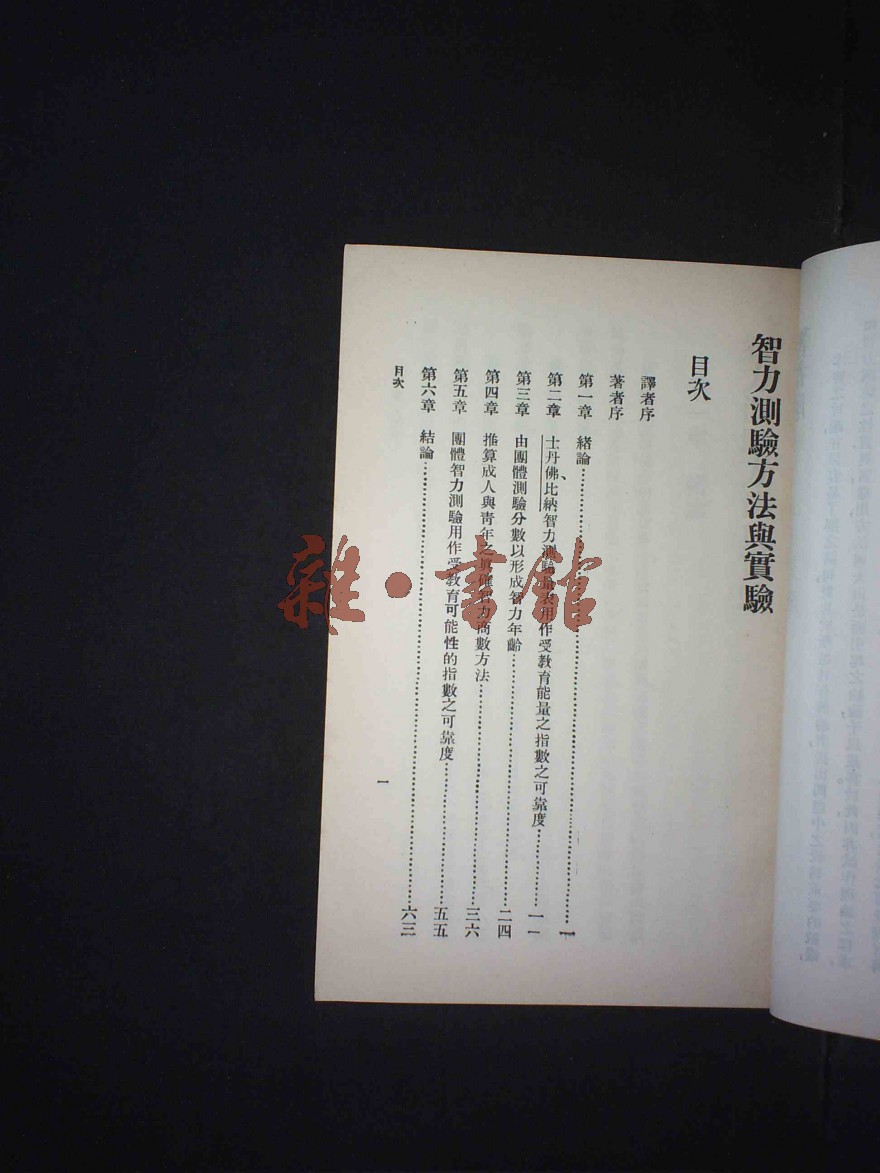 智力測驗方法與實驗
目次
譯者序
著者序
第一章 緒論⋯⋯⋯⋯⋯⋯⋯⋯一
第二章 士丹佛、比納智力測驗量表用作受教育能量之指數之可靠度⋯⋯⋯⋯一一
第三章 由團體測驗分數以形成智力年齡⋯⋯⋯⋯⋯⋯二四
第四章 推算成人與靑年之眞確智力商數方法⋯⋯⋯⋯⋯⋯三六
第五章 團體智力測驗用作受教育可能性的指數之可靠度⋯⋯⋯⋯五五
第六章 結論⋯⋯⋯⋯⋯⋯⋯⋯六三
目次
一
雜·書館